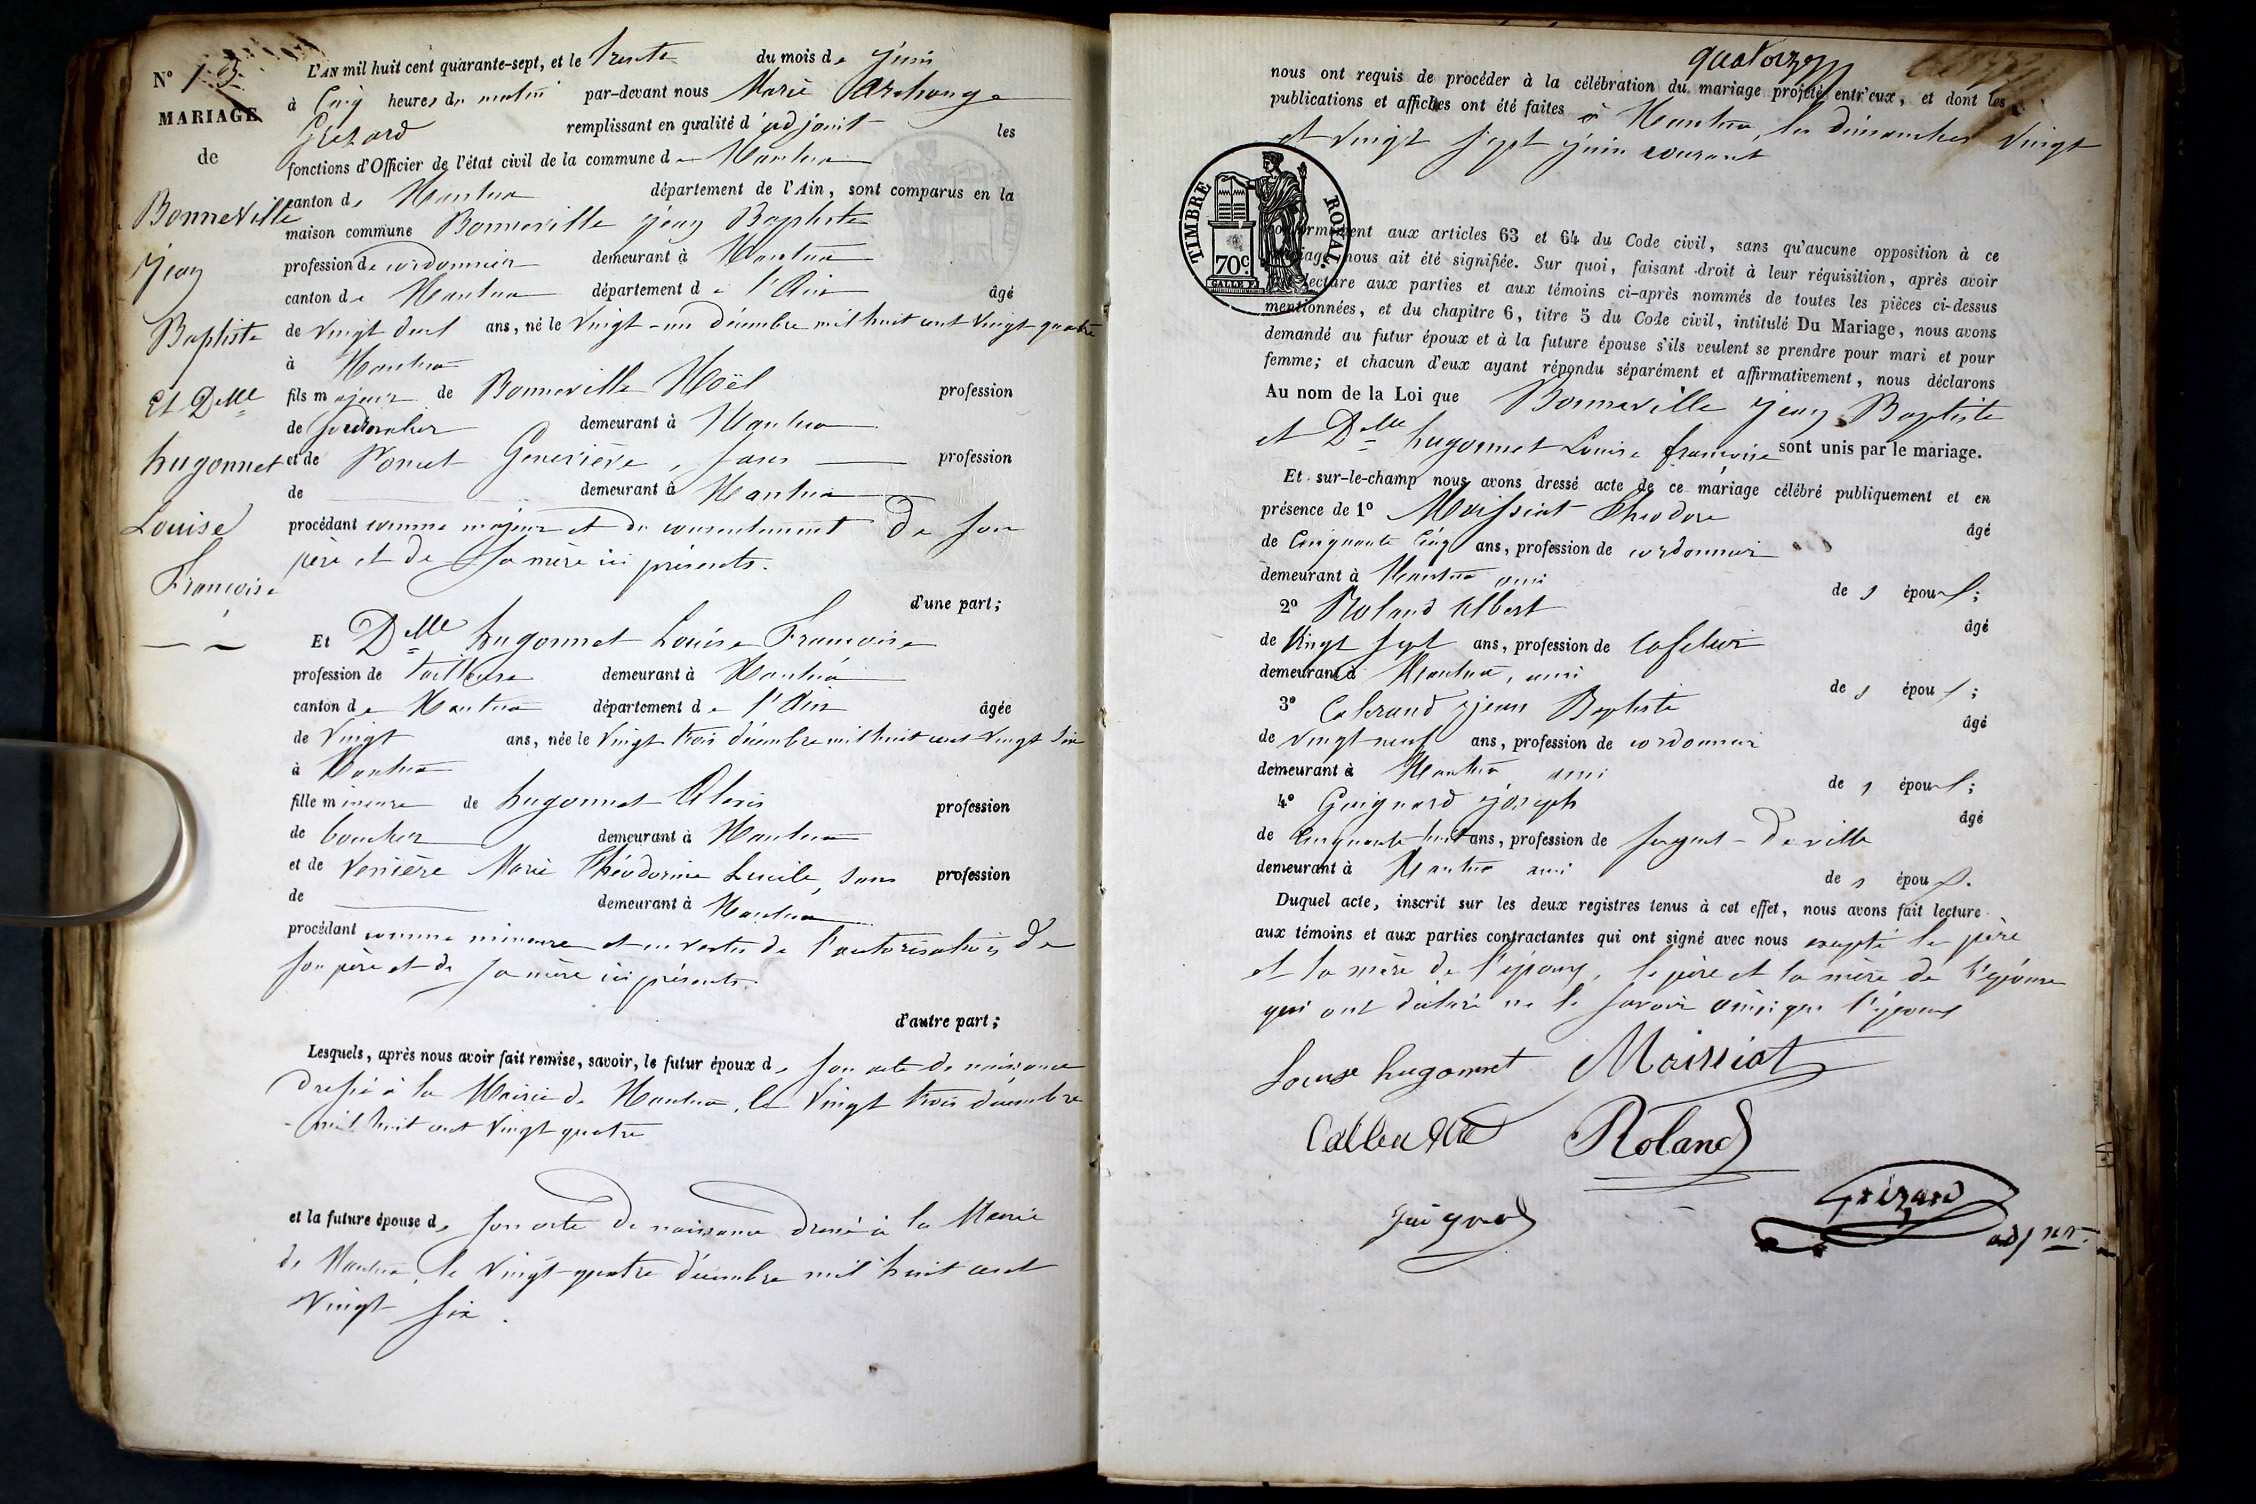 N° 13
MARIAGE
de
Bonneville
Jean
Baptiste
Et Delle
hugonnet
Louise
Françoise
L'AN mil huit cent quarante-sept, et le trente du mois de juin
à Cinq heures du matin par-devant nous Marie Archange
Grézard remplissant en qualité d'adjoint les
fonctions d'Officier de l'état civil de la commune de Nantua
canton de Nantua département de l'Ain, sont comparus en la
maison commune Bonneville Jean Baptiste
profession de cordonnier demeurant à Nantua
canton de Nantua département de l'Ain âgé
de vingt deux ans, né le vingt-un décembre mil huit cent vingt quatre
à Nantua
fils majeur de Bonneville Noël profession
de demeurant à Nantua
et de Poncet Geneviève, sans profession
de demeurant à Nantua
procédant comme majeur et du consentement de son
père et de sa mère ici présents.
d'une part;
Et Delle hugonnet Louise Françoise
profession de tailleuse demeurant à Nantua
canton de Nantua département de l'Ain âgée
de vingt ans, née le vingt trois décembre mil huit cent vingt six
à Nantua
fille mineure de hugonnet Alexis profession
de boucher demeurant à Nantua
et de Verrière Marie Théodorine Lucile, sans profession
de demeurant à Nantua
procédant comme mineure et en vertu de l'autorisation de
son père et de sa mère ici présents.
d'autre part;
Lesquels, après nous avoir fait remise, savoir, le futur époux de son acte de naissance
dressé à la Mairie de Nantua, le vingt trois décembre
mil huit cent vingt quatre
et la future épouse de son acte de naissance dressé à la Mairie
de Nantua, le vingt-quatre décembre mil huit cent
vingt six.
quatorze
nous ont requis de procéder à la célébration du mariage projeté entr'eux, et dont les
publications et affiches ont été faites à Nantua, les dimanches vingt
et vingt sept juin courant
TIMBRE ROYAL.
70c.
conformément aux articles 63 et 64 du Code civil, sans qu'aucune opposition à ce
mariage nous ait été signifiée. Sur quoi, faisant droit à leur réquisition, après avoir
lecture aux parties et aux témoins ci-après nommés de toutes les pièces ci-dessus
mentionnées, et du chapitre 6, titre 5 du Code civil, intitulé Du Mariage, nous avons
demandé au futur époux et à la future épouse s'ils veulent se prendre pour mari et pour
femme; et chacun d'eux ayant répondu séparément et affirmativement, nous déclarons
Au nom de la Loi que Bonneville Jean Baptiste
et Delle hugonnet Louise françoise sont unis par le mariage.
Et sur-le-champ nous avons dressé acte de ce mariage célébré publiquement et en
présence de 1° Moissiat Théodore âgé
de Cinquante cinq ans, profession de cordonnier
demeurant à Nantua ami de s époux;
2° Roland Albert âgé
de vingt sept ans, profession de Cafetier
demeurant à Nantua, ami de s époux;
3° Calerand Jean Baptiste âgé
de vingt neuf ans, profession de cordonnier
demeurant à Nantua ami de s époux;
4° Guignard Joseph âgé
de Cinquante huit ans, profession de sergent-de ville
demeurant à Nantua ami de s époux.
Duquel acte, inscrit sur les deux registres tenus à cet effet, nous avons fait lecture
aux témoins et aux parties contractantes qui ont signé avec nous excepté le père
et la mère de l'époux, le père et la mère de l'épouse
qui ont déclaré ne le savoir ainsi que l'époux
Louise hugonnet Moissiat
Roland
Guignard
Grézard
adj